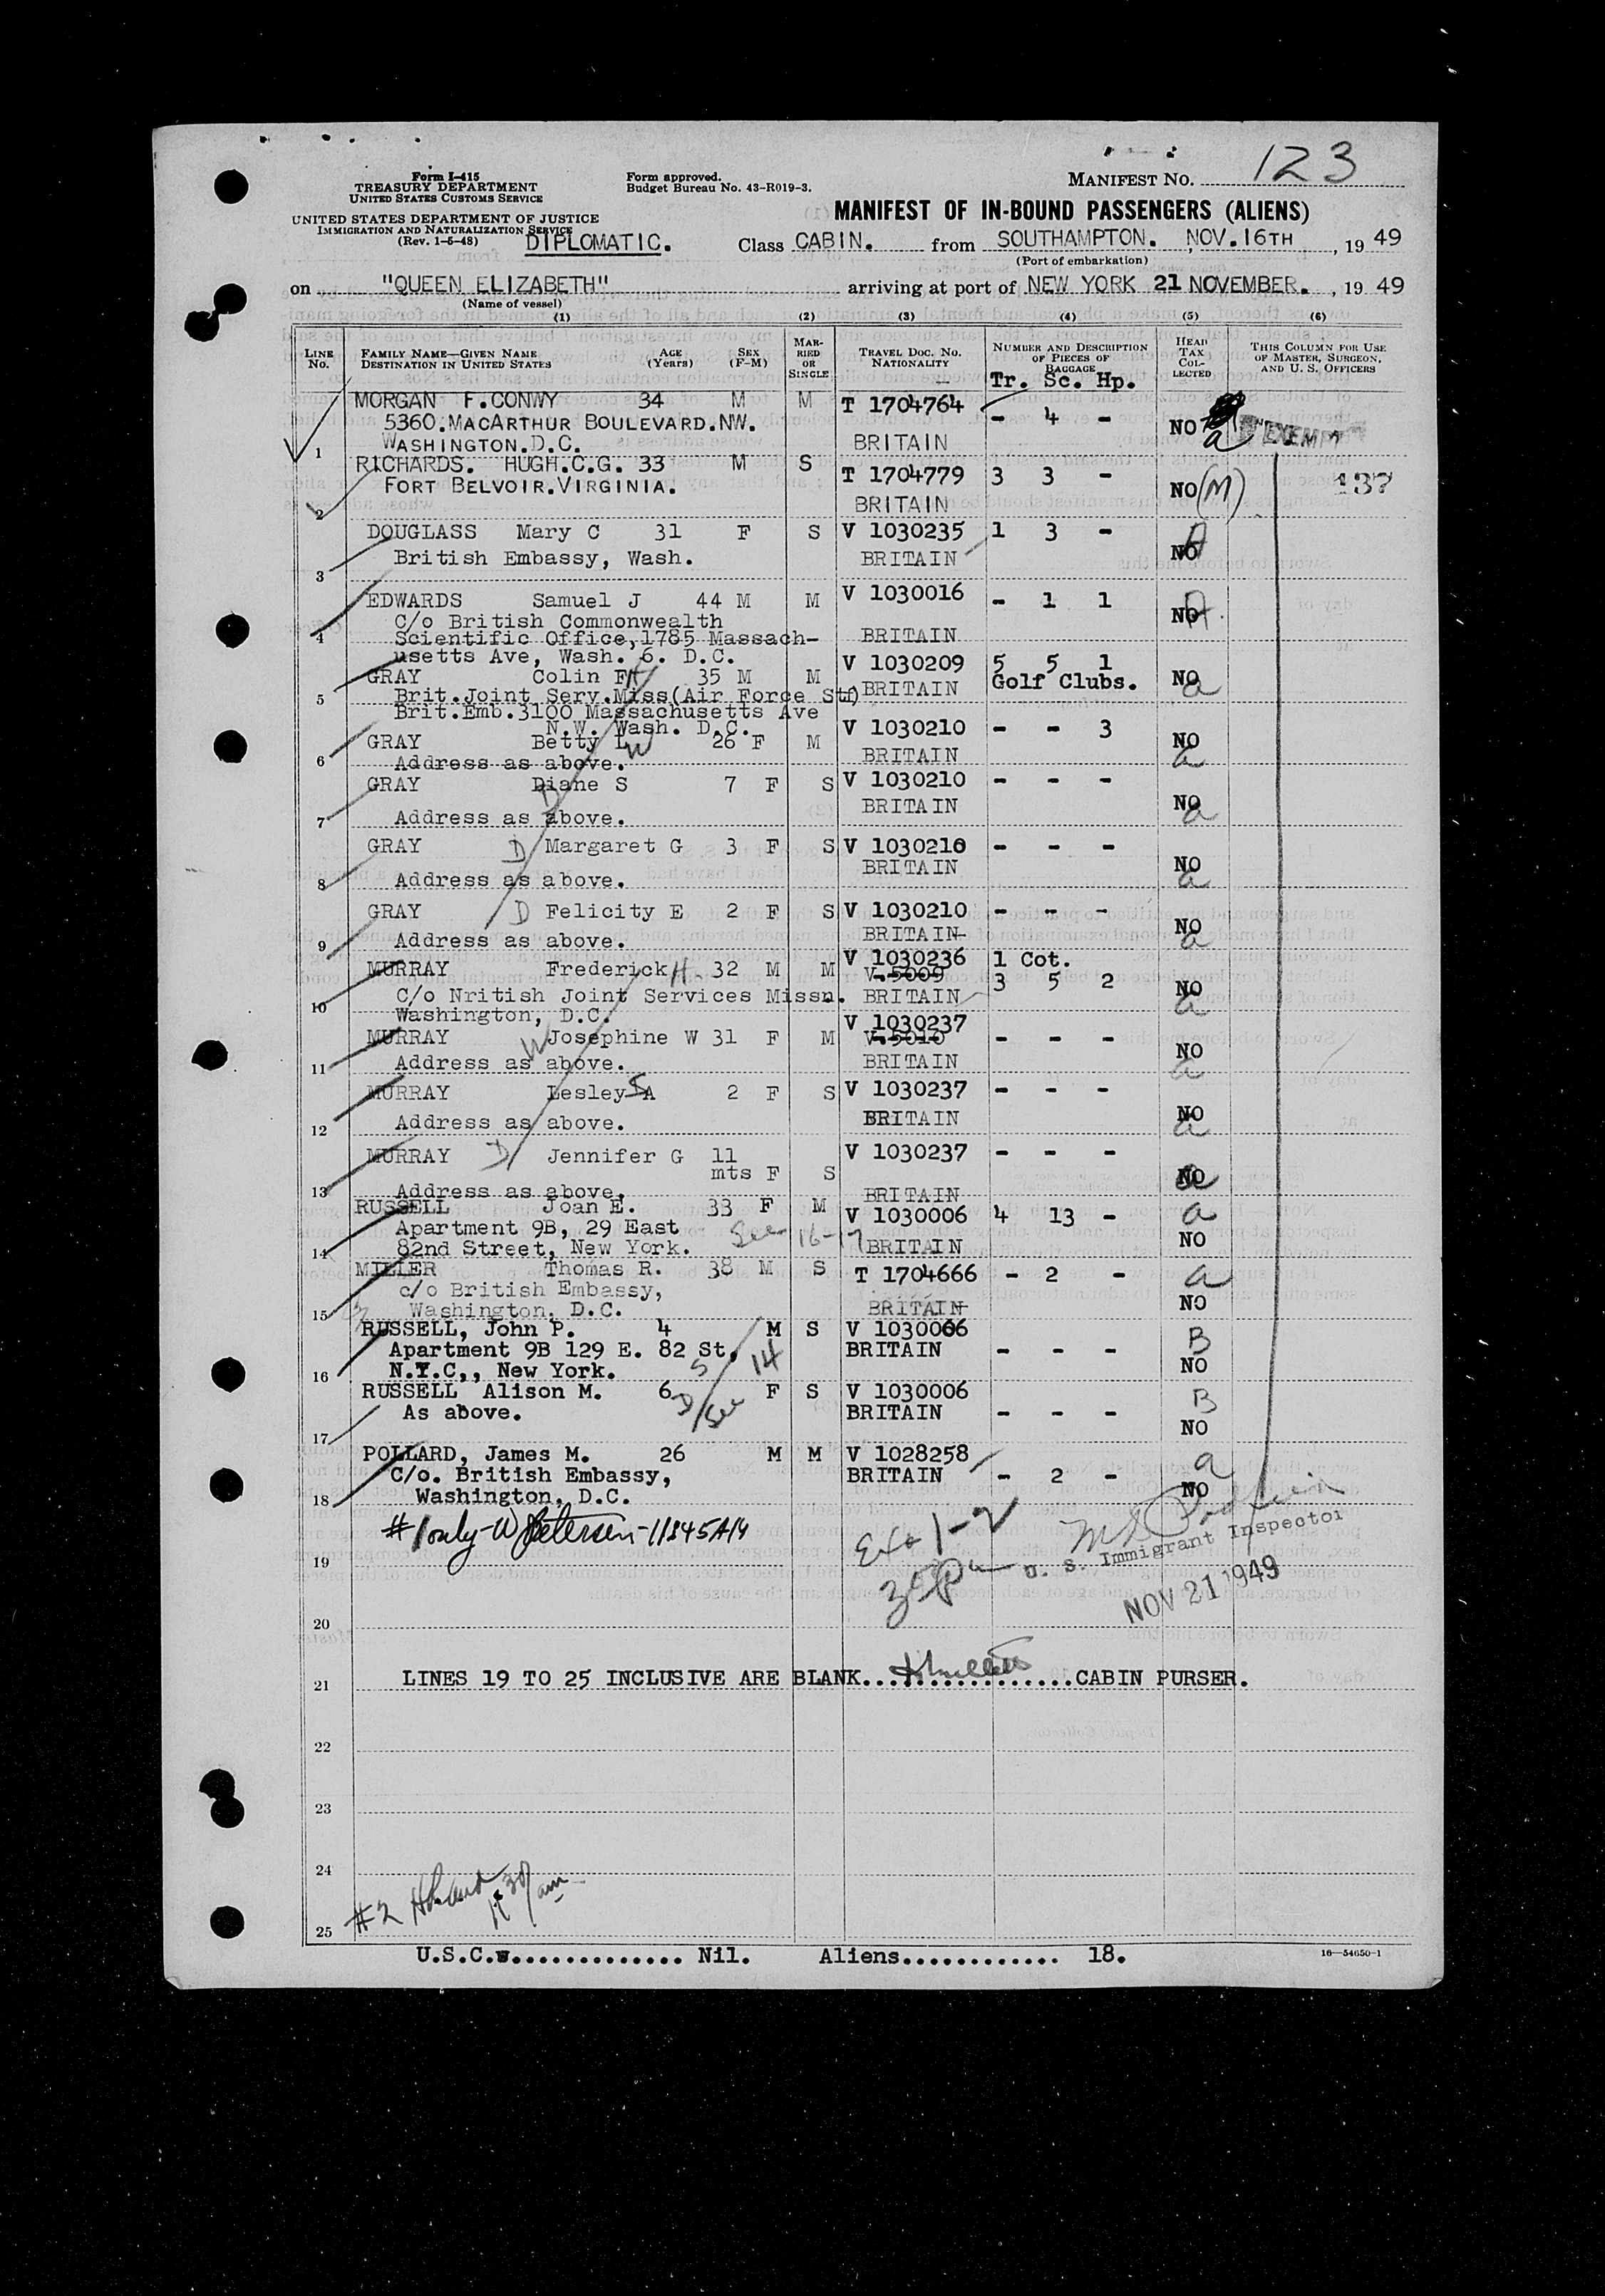 123
Form I-415
TREASURY DEPARTMENT
UNITED STATES CUSTOMS SERVICE
Form approved.
Budget Bureau No. 43-R019-3.
MANIFEST NO.
UNITED STATES DEPARTMENT OF JUSTICE
IMMIGRATION AND NATURALIZATION SERVICE
(Rev. 1-5-48)
MANIFEST OF IN-BOUND PASSENGERS (ALIENS)
DIPLOMATIC. Class CABIN. from SOUTHAMPTON. NOV. 16TH, 1949
(Port of embarkation)
on "QUEEN ELIZABETH" arriving at port of NEW YORK 21 NOVEMBER., 1949
(Name of vessel)
(1) (2) (3) (4) (5) (6)
LINE No. FAMILY NAME—GIVEN NAME DESTINATION IN UNITED STATES AGE (Years) SEX (F-M) MARRIED OR SINGLE TRAVEL DOC. NO. NATIONALITY NUMBER AND DESCRIPTION OF PIECES OF BAGGAGE HEAD TAX COLLECTED THIS COLUMN FOR USE OF MASTER, SURGEON, AND U. S. OFFICERS
Tr. Sc. Hp.
MORGAN F.CONWY 34 M M T 1704764 - 4 -
5360.MACARTHUR BOULEVARD.NW. NO a EXEMPT
1 WASHINGTON.D.C. BRITAIN
RICHARDS. HUGH.C.G. 33 M S T 1704779 3 3 -
FORT BELVOIR.VIRGINIA. NO (M) 137
2 BRITAIN
DOUGLASS Mary C 31 F S V 1030235 1 3 -
British Embassy, Wash. BRITAIN NO
3
EDWARDS Samuel J 44 M M V 1030016 - 1 1
C/o British Commonwealth NO
4 Scientific Office,1785 Massach- BRITAIN
usetts Ave, Wash. 6. D.C.
GRAY Colin F 35 M M V 1030209 5 5 1
5 Brit.Joint Serv.Miss(Air Force Stf) BRITAIN Golf Clubs. NO a
Brit.Emb.3100 Massachusetts Ave
N.W. Wash. D.C.
GRAY Betty L W 26 F M V 1030210 - - 3
6 Address as above. BRITAIN NO a
GRAY D Diane S 7 F S V 1030210 - - -
7 Address as above. BRITAIN NO a
GRAY D Margaret G 3 F S V 1030210 - - -
8 Address as above. BRITAIN NO a
GRAY D Felicity E 2 F S V 1030210 - - -
9 Address as above. BRITAIN NO a
MURRAY Frederick H. 32 M M V 1030236 1 Cot.
V.5009 3 5 2
10 C/o Nritish Joint Services Missn. BRITAIN NO a
Washington, D.C.
MURRAY W Josephine W 31 F M V 1030237 - - -
V.5010
11 Address as above. BRITAIN NO a
MURRAY Lesley S A 2 F S V 1030237 - - -
12 Address as above. BRITAIN NO a
MURRAY D Jennifer G 11 mts F S V 1030237 - - -
13 Address as above. BRITAIN NO a
RUSSELL Joan E. 33 F M V 1030006 4 13 - a
Apartment 9B, 29 East See 16-17
14 82nd Street, New York. BRITAIN NO
MILLER Thomas R. 38 M S T 1704666 - 2 - a
c/o British Embassy,
15 Washington. D.C. BRITAIN NO
RUSSELL, John P. 4 M S V 1030006 B
Apartment 9B 129 E. 82 St. S 14 BRITAIN - - -
16 N.Y.C,, New York. NO
RUSSELL Alison M. 6 D See F S V 1030006 B
As above. BRITAIN - - -
17 NO
POLLARD, James M. 26 M M V 1028258 a
C/o. British Embassy, BRITAIN - 2 -
18 Washington, D.C. NO
#1 only-W Petersen-11845A14
U. S. Immigrant Inspector
19
NOV 21 1949
20
21 LINES 19 TO 25 INCLUSIVE ARE BLANK..................CABIN PURSER.
22
23
24
#2 30 am
25
U.S.C.s.............. Nil. Aliens............. 18.
16—54650-1